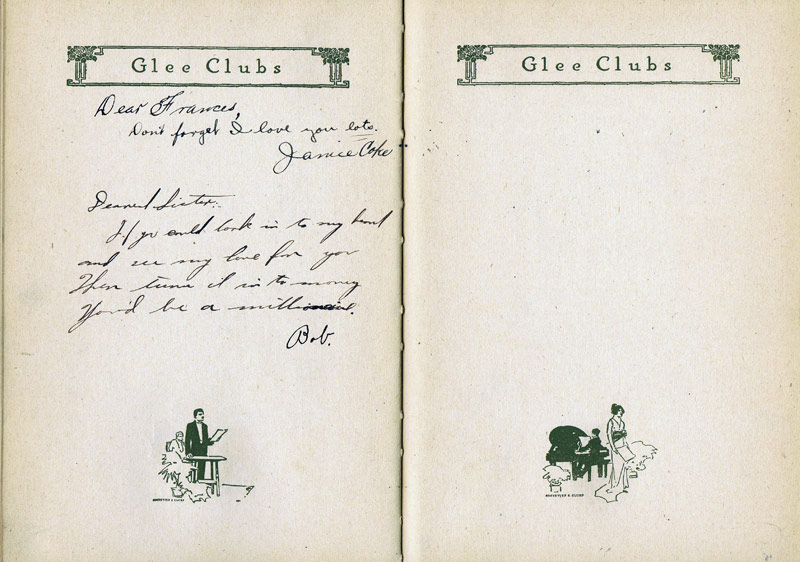 Glee Clubs
Dear Frances,
Don't forget I love you lots.
Janice Coke
Dearest Sister:
If yo could look in to my heart
and see my love for you
Then turn it in to money
You'd be a millionaire.
Bob.
Glee Clubs